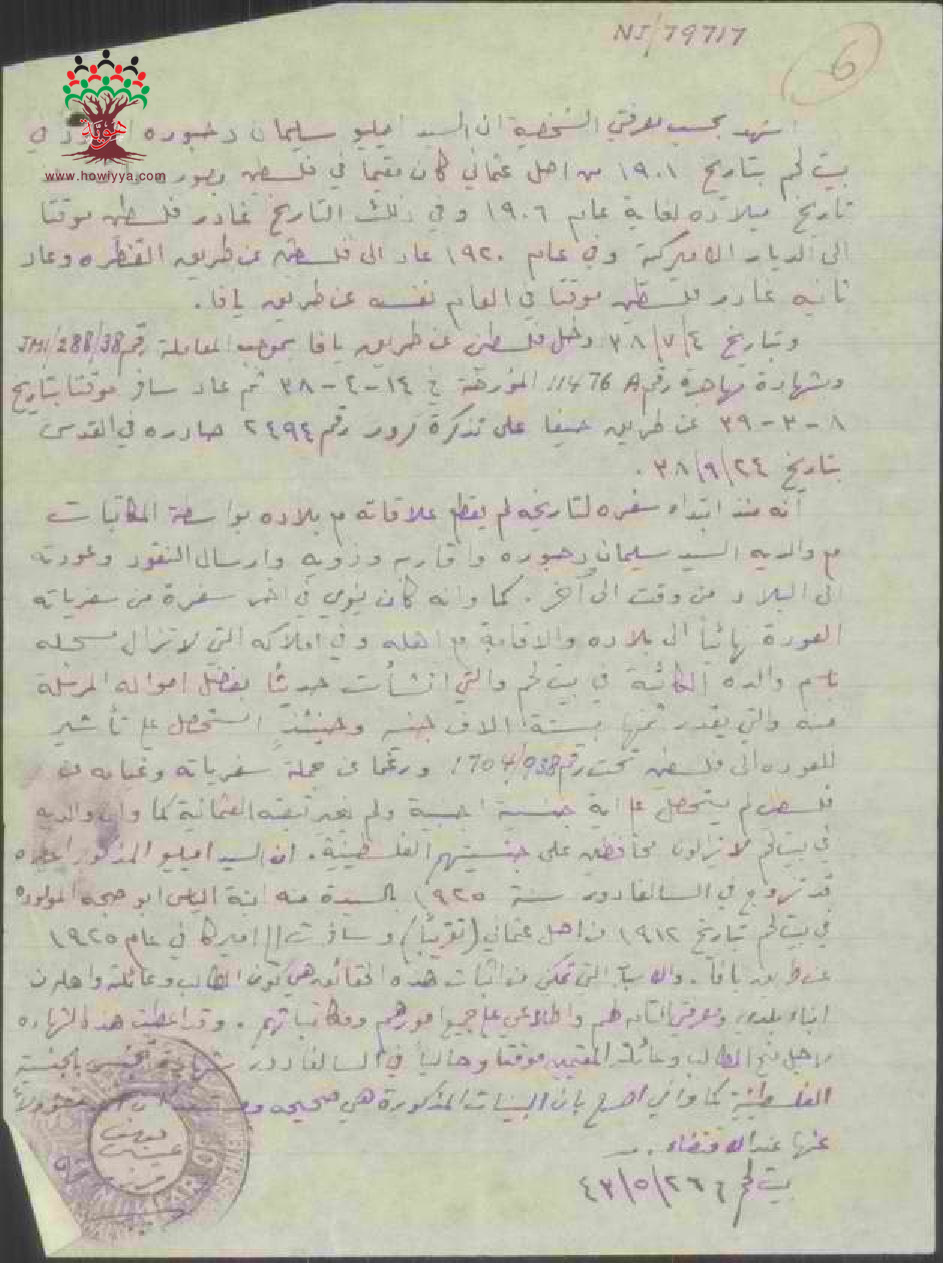 NI/79717
6
هوية
www.howiyya.com
اشهد بحسب معرفتي الشخصية ان السيد اميليو سليمان دحبوره المولود في
بيت لحم بتاريخ ١٩٠١ من اصل عثماني كان مقيماً في فلسطين بصوره
تاريخ ميلاده لغاية عام ١٩٠٦ وفي ذلك التاريخ غادر فلسطين موقتا
الى الديار الاميركية وفي عام ١٩٢٠ عاد الى فلسطين عن طريق القنطره وعاد
ثانية غادر فلسطين موقتا في العام نفسه عن طريق يافا.
وبتاريخ ٣٨/٧/٤ دخل فلسطين عن طريق يافا بموجب المعاملة رقم JMI/288/38
وشهادة مهاجرة رقم 11476 A المؤرخة في ١٤-٢-٣٨ ثم عاد سافر موقتا بتاريخ
٨-٣-٣٩ عن طريق حيفا على تذكرة مرور رقم ٢٤٩٤ صادره في القدس
بتاريخ ٣٨/٩/٢٤.
انه منذ ابتداء سفره لتاريخه لم يقطع علاقاته مع بلاده بواسطة المكاتبات
مع والديه السيد سليمان دحبوره واقاربه وذويه وارسال النقود وعودته
الى البلاد من وقت الى آخر. كما وانه كان ينوي في اخر سفرة من سفرياته
العودة نهائياً الى بلاده والاقامة مع اهله وفي املاكه التي لا تزال مسجله
باسم والده الكائنة في بيت لحم والتي انشأت حديثا بفضل امواله المرسلة
منه والتي يقدر ثمنها بستة الاف جنيه وحينئذ استحصل على تأشير
للعوده الى فلسطين تحت رقم 1704/938 ورغما عن جملة سفرياته وغيابه عن
فلسطين لم يتحصل على اية جنسية اجنبية ولم يغير تبعته العثمانية كما وان والديه
في بيت لحم لا يزالون محافظين على جنسيتهم الفلسطينية. ان السيد اميليو المذكور اعلاه
قد تزوج في السالفادور سنة ١٩٢٥ بالسيدة منه ابنة الياس ابو المولوده
في بيت لحم بتاريخ ١٩١٢ من اصل عثماني (تقريباً) وسافرت الى اميركا في عام ١٩٢٥
عن طريق يافا. والاسباب التي تمكني من اثبات هذه الحقائق هي كون الطالب وعائلته واهله من
ابناء بلدي ومعرفتي التامه لهم واطلاعي على جميع امورهم ومكاتباتهم. وقد اعطيت هذه الشهاده
لاجل منح الطالب وعائلته المقيمين موقتا وحاليا في السالفادور شهادة تجنس بالجنسية
الفلسطينية كما واني اصرح بان البينات المذكورة هي صحيحه مسؤولاً
عنها عند الاقتضاء.
بيت لحم ٤٣/٥/٢٦